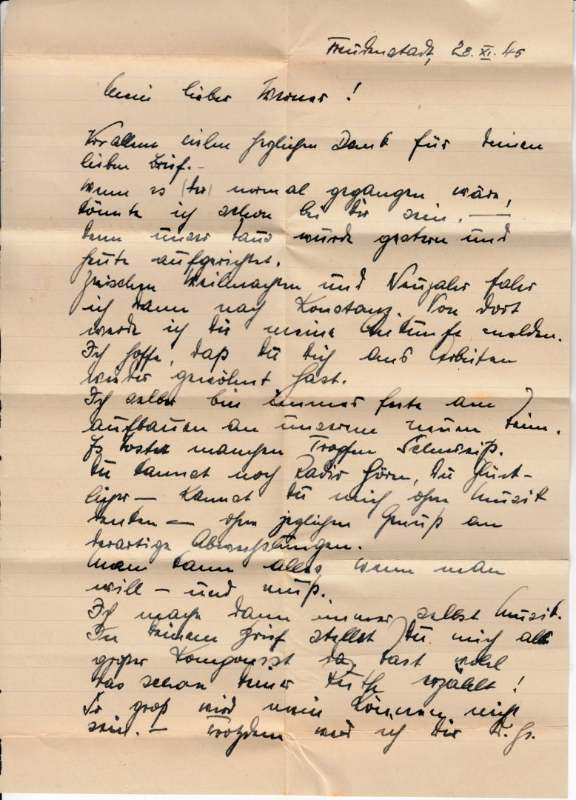 Freudenstadt, 28. XI. 45
Mein lieber Werner!
Vor allem vielen herzlichen Dank für deinen
lieben Brief.-
Wenn es normal gegangen wäre,
könnte ich schon bei dir sein. —
denn unser wurde gestern und
heute aufgerichtet.
Zwischen Weihnachten und Neujahr fahr
ich dann nach Konstanz. Von dort
werde ich dir meine Ankunft melden.
Ich hoffe, daß du dich ans Arbeiten
wieder gewöhnt hast.
Ich selber bin immer feste am
aufbauen an unserem neuen Heim.
Es kostet manchen Tropfen Schweiß.
Du kannst noch Radio hörn, du Glück-
licher — kannst du mich ohne Musik
denken — ohne jeglichen Genuß an
derartige Abwechslungen.
Man kann alles wenn man
will – und muß.
Ich mache dann immer selbst Musik.
In deinem Brief stellst du mich als
großer Komponist da, hast wohl
das schon deiner Ruth erzählt!
So groß wird mein Können nicht
sein. — Trotzdem werd ich dir